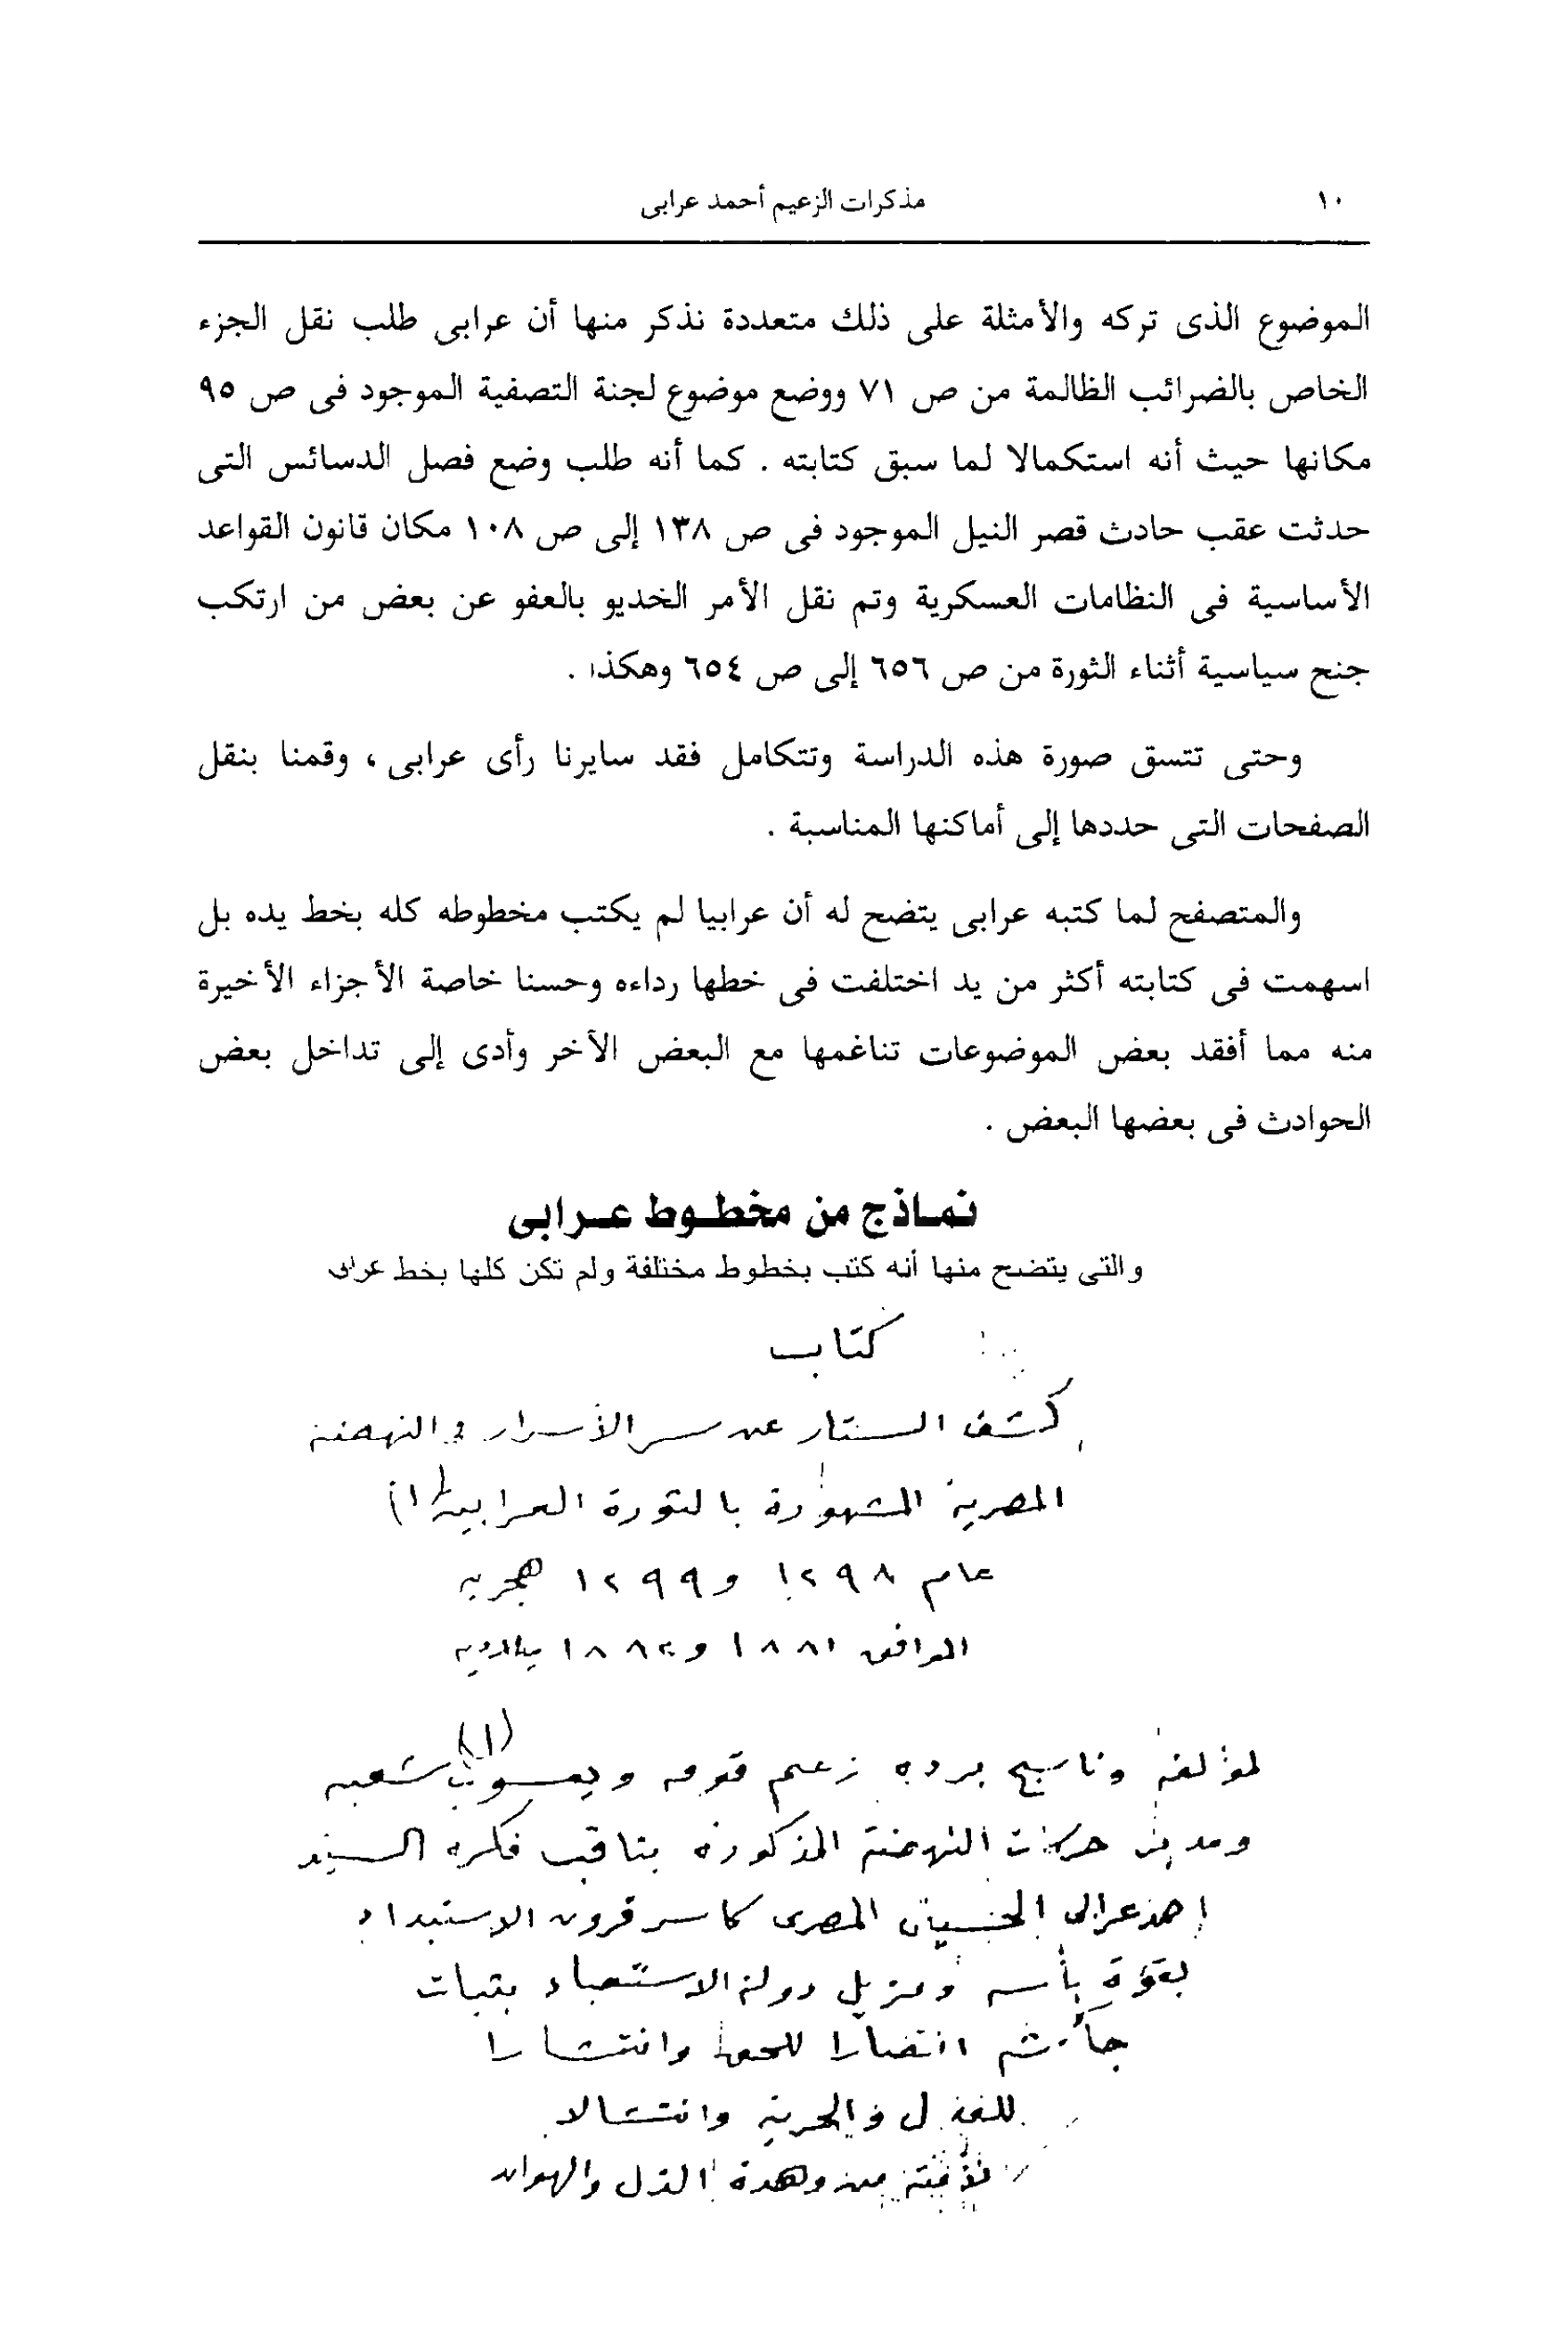 ١٠
مذكرات الزعيم أحمد عرابى
الموضوع الذى تركه والأمثلة على ذلك متعددة نذكر منها أن عرابى طلب نقل الجزء
الخاص بالضرائب الظالمة من ص ٧١ ووضع موضوع لجنة التصفية الموجود فى ص ٩٥
مكانها حيث أنه استكمالا لما سبق كتابته . كما أنه طلب وضع فصل الدسائس التى
حدثت عقب حادث قصر النيل الموجود فى ص ١٣٨ إلى ص ١٠٨ مكان قانون القواعد
الأساسية فى النظامات العسكرية وتم نقل الأمر الخديو بالعفو عن بعض من ارتكب
جنح سياسية أثناء الثورة من ص ٦٥٦ إلى ص ٦٥٤ وهكذا .
وحتى تتسق صورة هذه الدراسة وتتكامل فقد سايرنا رأى عرابى ، وقمنا بنقل
الصفحات التى حددها إلى أماكنها المناسبة .
والمتصفح لما كتبه عرابى يتضح له أن عرابيا لم يكتب مخطوطه كله بخط يده بل
اسهمت فى كتابته أكثر من يد اختلفت فى خطها رداءه وحسنا خاصة الأجزاء الأخيرة
منه مما أفقد بعض الموضوعات تناغمها مع البعض الآخر وأدى إلى تداخل بعض
الحوادث فى بعضها البعض .
نمـاذج من مخطـوط عـرابى
والتى يتضح منها أنه كتب بخطوط مختلفة ولم تكن كلها بخط عرابى
كتاب
كشف الستار عن سر الأسرار فى النهضة
المصرية المشهورة بالثورة العرابية (١)
عام ١٢٩٨ و ١٢٩٩ هجرية
الموافق ١٨٨١ و ١٨٨٢ ميلادية
لمؤلفه وناسج برده زعيم قومه ويعسوب (١) شعبه
ومدير حركات النهضة المذكورة بثاقب فكره السيد
احمد عرابى الحسينى المصرى كاسر قرون الاستبداد
بقوة بأسه ومزيل دولة الاستعباد بثبات
جأشه انتصارا للحق وانتشارا
للعدل والحرية وانتشالا
لأمته من وهدة الذل والهوان